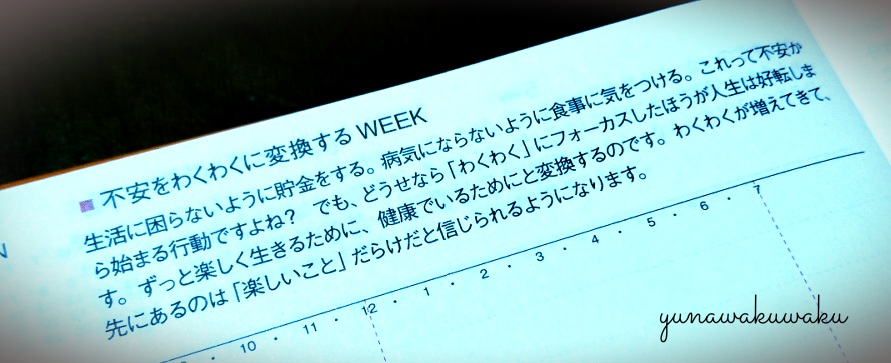 ■ 不安をわくわくに変換する WEEK
生活に困らないように貯金をする。病気にならないように食事に気をつける。これって不安か
ら始まる行動ですよね？ でも、どうせなら「わくわく」にフォーカスしたほうが人生は好転しま
す。ずっと楽しく生きるために、健康でいるためにと変換するのです。わくわくが増えてきて、
先にあるのは「楽しいこと」だらけだと信じられるようになります。
10 ・ 11 ・ 12 ・ 1 ・ 2 ・ 3 ・ 4 ・ 5 ・ 6 ・ 7
yunawakuwaku